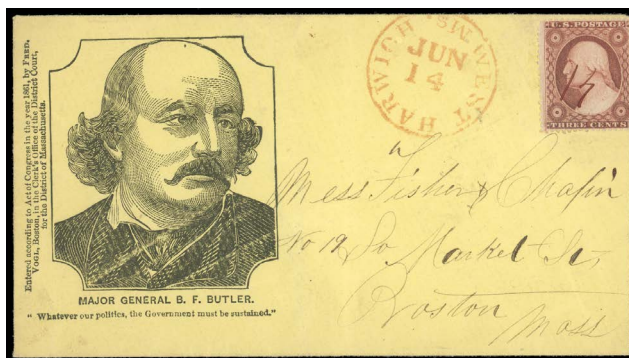 Entered according to Act of Congress in the year 1861, by FRED.
VOGL, Boston, in the Clerk's Office of the District Court,
for the District of Massachusetts.
MAJOR GENERAL B. F. BUTLER.
"Whatever our politics, the Government must be sustained."
WEST HARWICH MS.
JUN
14
U.S. POSTAGE
THREE CENTS
Mess Fisher & Chapin
No 12 So Market St,
Boston
Mass